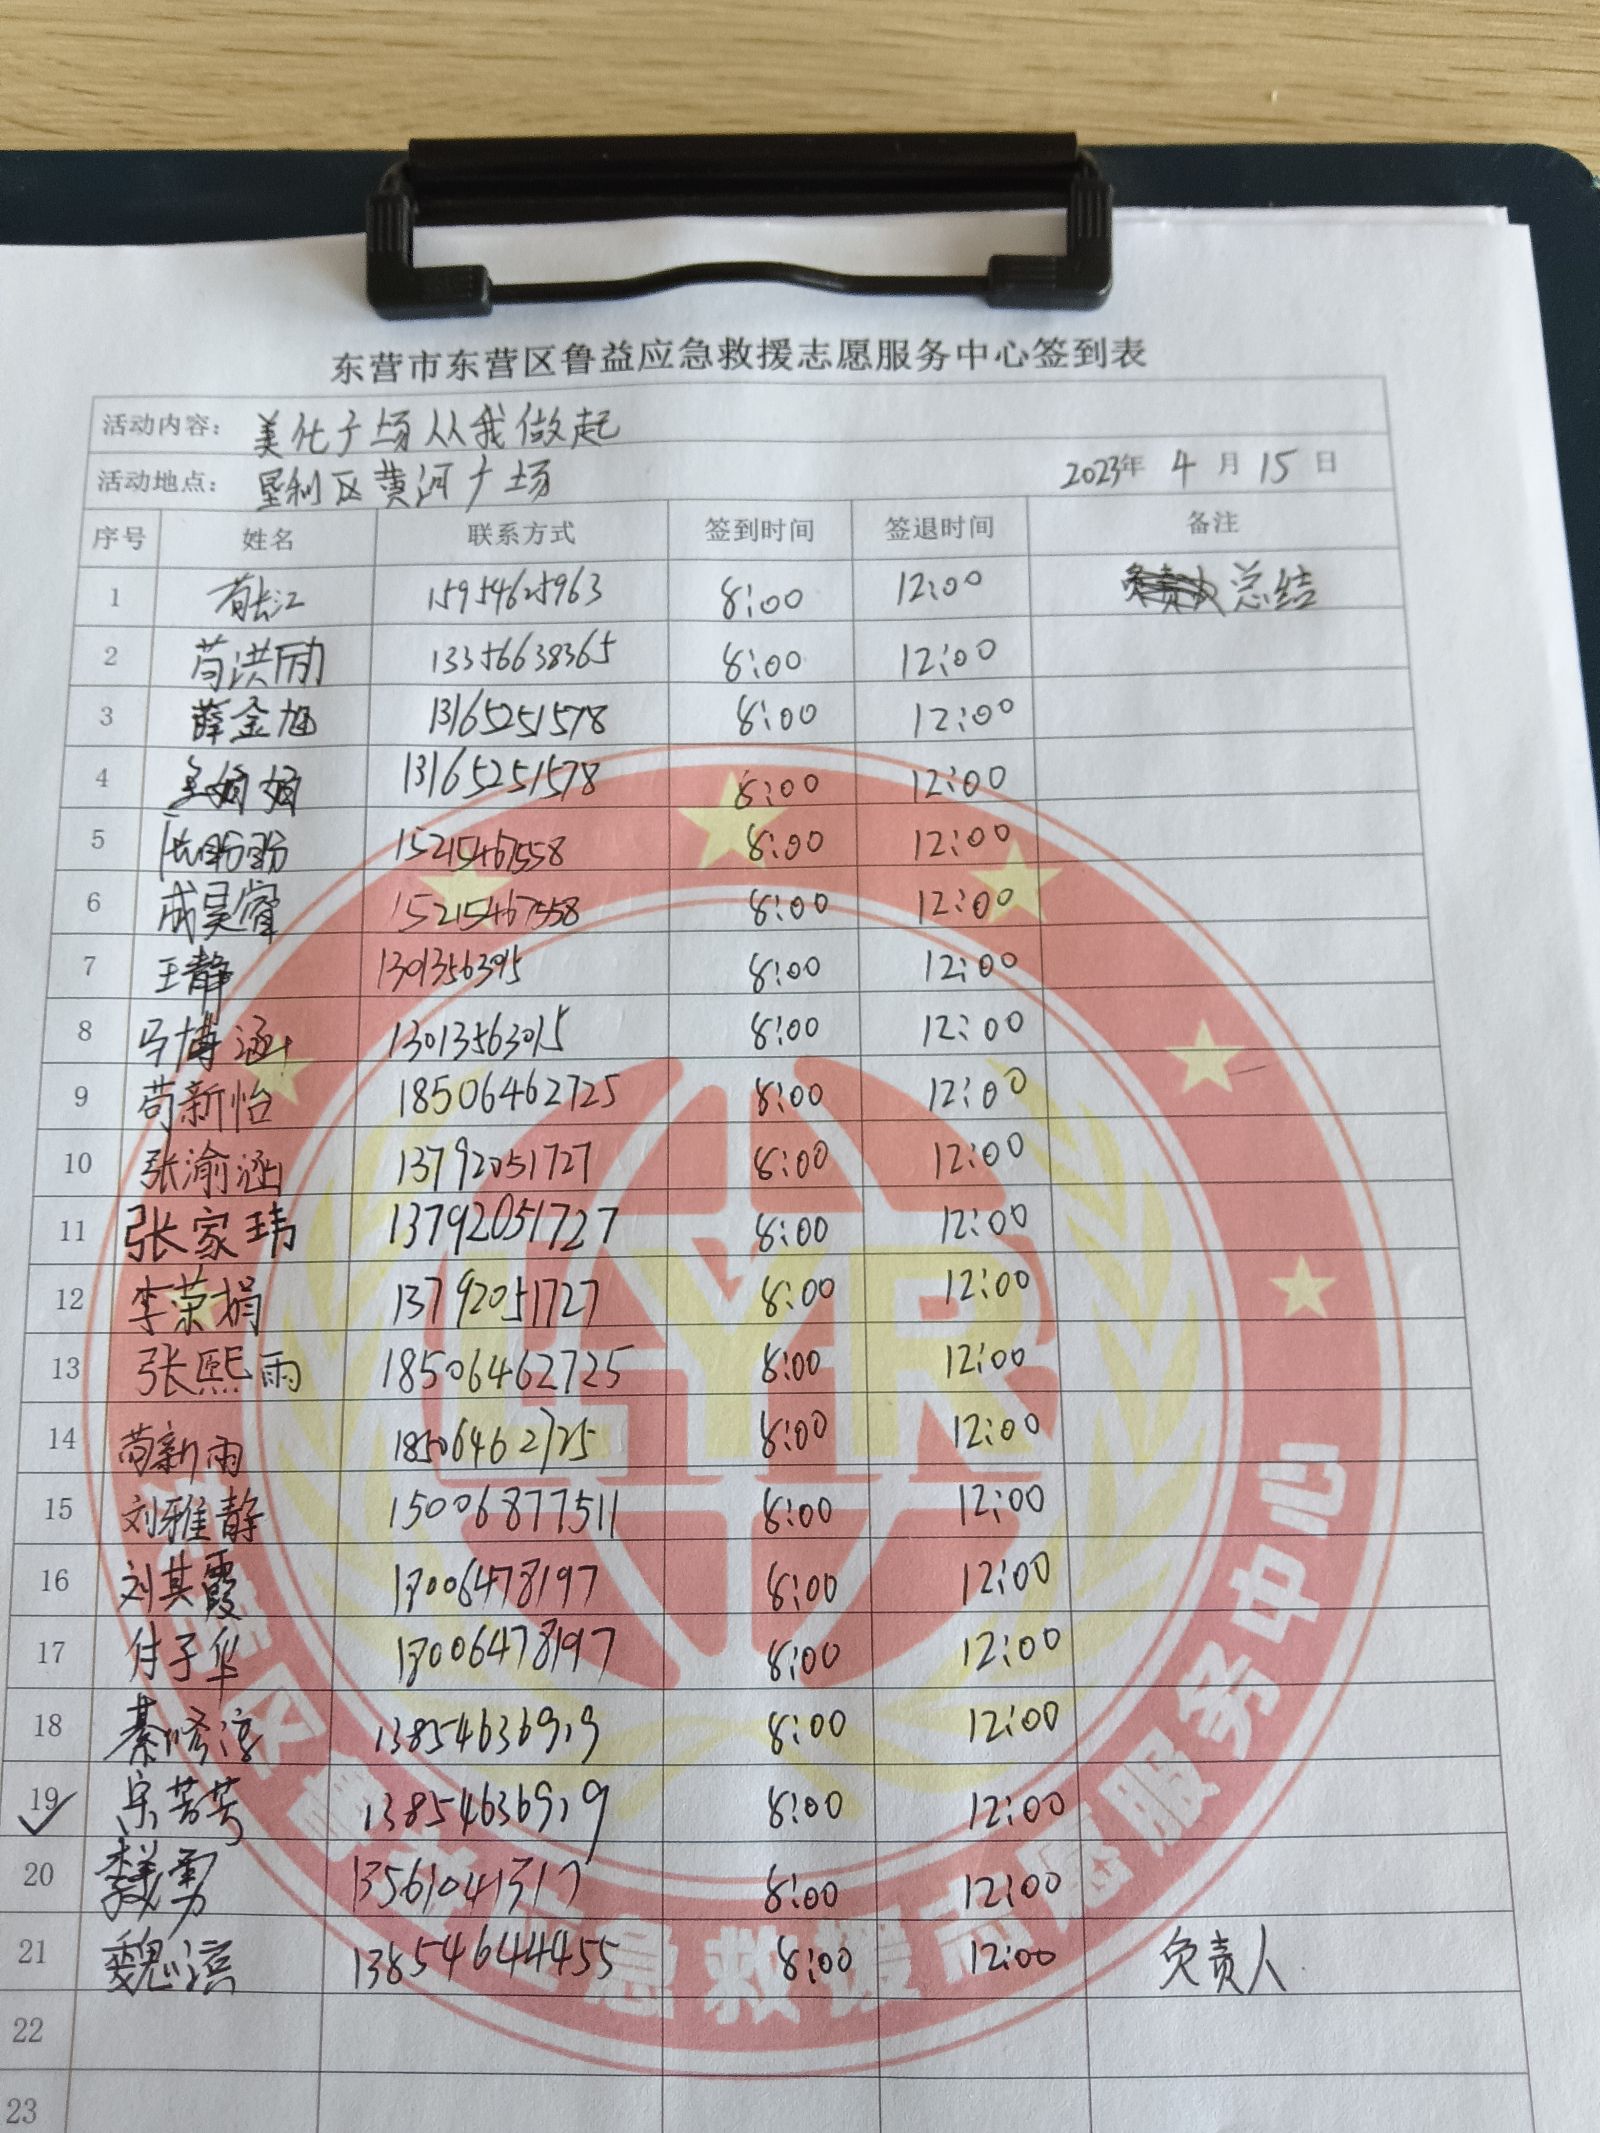 东营市东营区鲁益应急救援志愿服务中心签到表
活动内容： 美化广场从我做起
活动地点： 垦利区黄河广场 2023年 4 月 15 日
序号 姓名 联系方式 签到时间 签退时间 备注
1 苟长江 15954625963 8:00 12:00 总结
2 苟洪励 13356638365 8:00 12:00
3 薛金旭 13165251578 8:00 12:00
4 13165251578 8:00 12:00
5 15215467558 8:00 12:00
6 成昊睿 15215467558 8:00 12:00
7 王静 8:00 12:00
8 马博涵 13013563015 8:00 12:00
9 苟新怡 18506462725 8:00 12:00
10 张渝涵 13792051727 8:00 12:00
11 张家玮 13792051727 8:00 12:00
12 李荣娟 13792051727 8:00 12:00
13 张熙雨 18506462725 8:00 12:00
14 苟新雨 18506462725 8:00 12:00
15 刘雅静 15006877511 8:00 12:00
16 刘其霞 8:00 12:00
17 付子华 8:00 12:00
18 綦修淳 13854636919 8:00 12:00
19 宗芳芳 13854636919 8:00 12:00
20 魏勇 13561041317 8:00 12:00
21 魏滨 13854644455 8:00 12:00 负责人
22
23
LYR
应急救援志愿服务中心